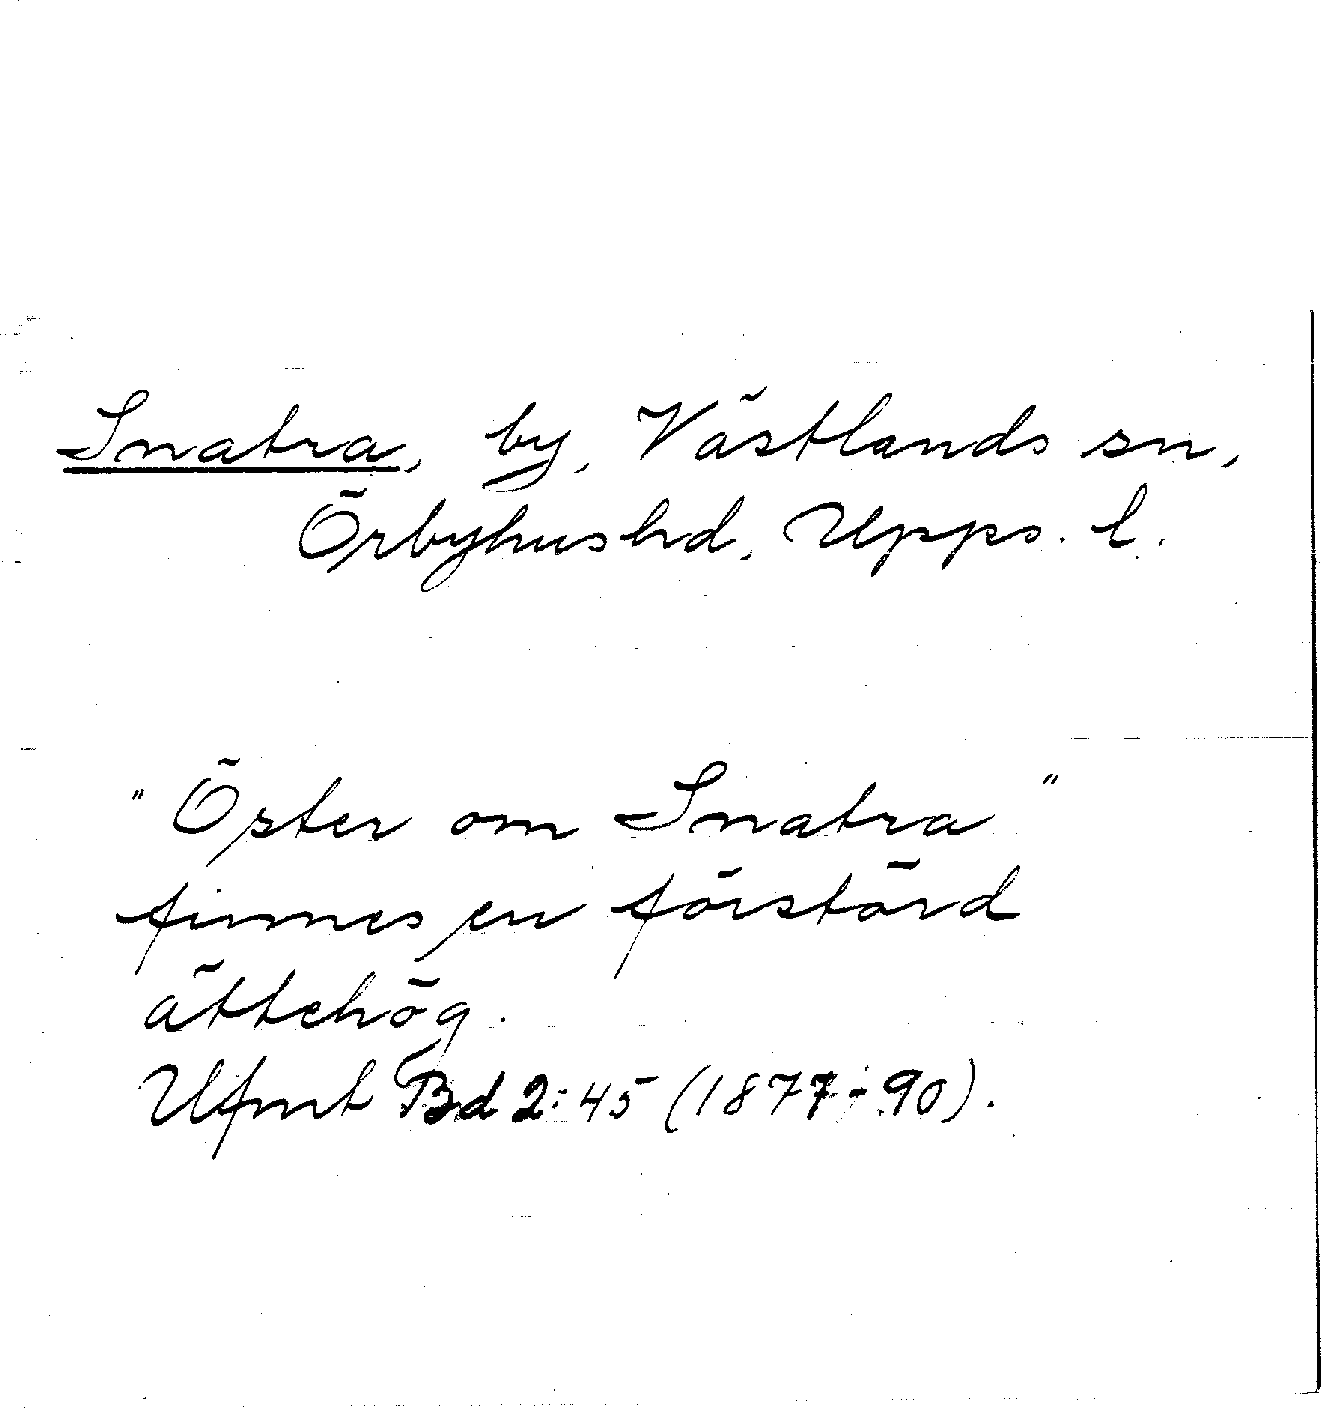 Snatra, by, Västlands sn,
Örbyhus hd, Upps. l.
"Öster om Snatra"
finnes en förstörd
ättehög.
Ufmt Bd 2:45 (1877-90).